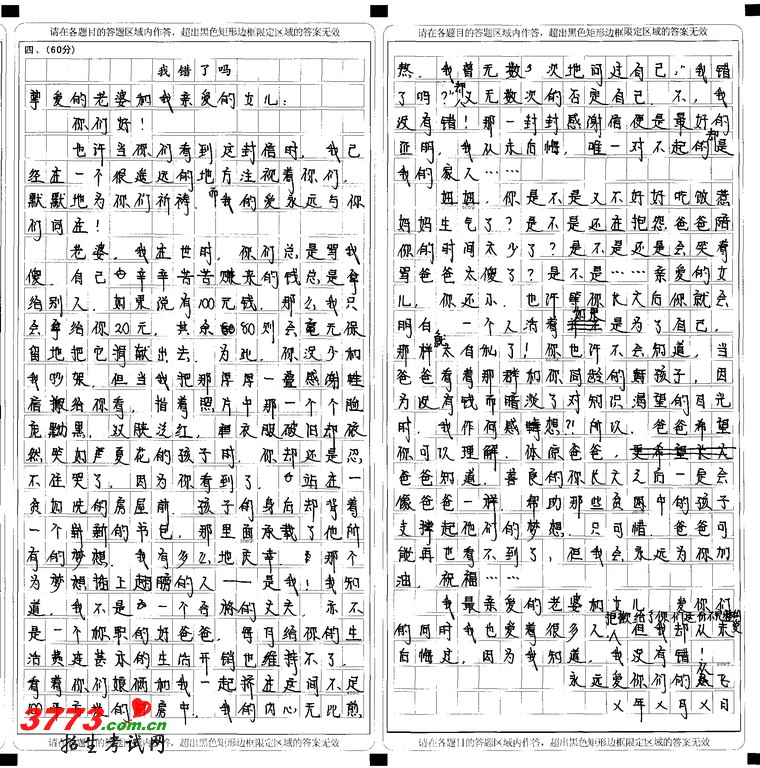 请在各题目的答题区域内作答，超出黑色矩形边框限定区域的答案无效
四、(60分)
我错了吗
尊爱的老婆和我亲爱的女儿：
你们好！
也许当你们看到这封信时，我已
经在一个很遥远的地方注视着你们，
默默地为你们祈祷，而我的爱永远与你
们同在！
老婆，我在世时，你们总是骂我
傻，自己辛辛苦苦赚来的钱总是拿
给别人，如果说有100元钱，那么我只
会拿给你20元，其余80则会毫无保
留地把它捐献出去，为此，你没少和
我吵架，但当我把那厚厚一叠感谢
信搬给你看，指着照片中那一个个脸
庞黝黑，双肤泛红，衣服破旧却依
然笑如声夏花的孩子时，你却还是忍
不住哭了，因为你看到了，站在一
贫如洗的房屋前，孩子的身后却背着
一个崭新的书包，那里面承载了他所
有的梦想，我有多么地庆幸，那个
为梦想插上翅膀的人——是我！我知
道，我不是一个合格的丈夫，亦不
是一个称职的好爸爸，每月给你的生
活费连基本的生活开销也维持不了，
看着你们娘俩和我一起挤在这间不足
房中，我的内心无比煎
请在各题目的答题区域内作答，超出黑色矩形边框限定区域的答案无效
请在各题目的答题区域内作答，超出黑色矩形边框限定区域的答案无效
熬，我曾无数次地问过自己："我错
了吗？"却又无数次的否定自己，不，我
没有错！那一封封感谢信便是最好的
证明，我从未后悔，唯一对不起的却是
我的家人……
妞妞，你是不是又不好好吃饭惹
妈妈生气了？是不是还在抱怨爸爸陪
你的时间太少了？是不是还是会哭着
骂爸爸太傻了？是不是……亲爱的女
儿，你还小，也许等你长大后你就会
明白，一个人活着如果是为了自己，
那样就太自私了！你也许不会知道，当
爸爸看着那群和你同龄的孩子，因
为没有钱而暗淡了对知识渴望的目光
时，我作何感想？！所以，爸爸希望
你可以理解，体谅爸爸，
爸爸知道，善良的你长大之后一定会
像爸爸一样，帮助那些贫困中的孩子
支撑起他们的梦想，只可惜，爸爸可
能再也看不到了，但我会永远为你加
油，祝福……
我最亲爱的老婆和女儿，爱你们
的同时我也爱着很多人，但我却从未
后悔过，因为我知道，我没有错！
永远爱你们的丛飞
X年X月X日
请在各题目的答题区域内作答，超出黑色矩形边框限定区域的答案无效
3773.com.cn
招生考试网